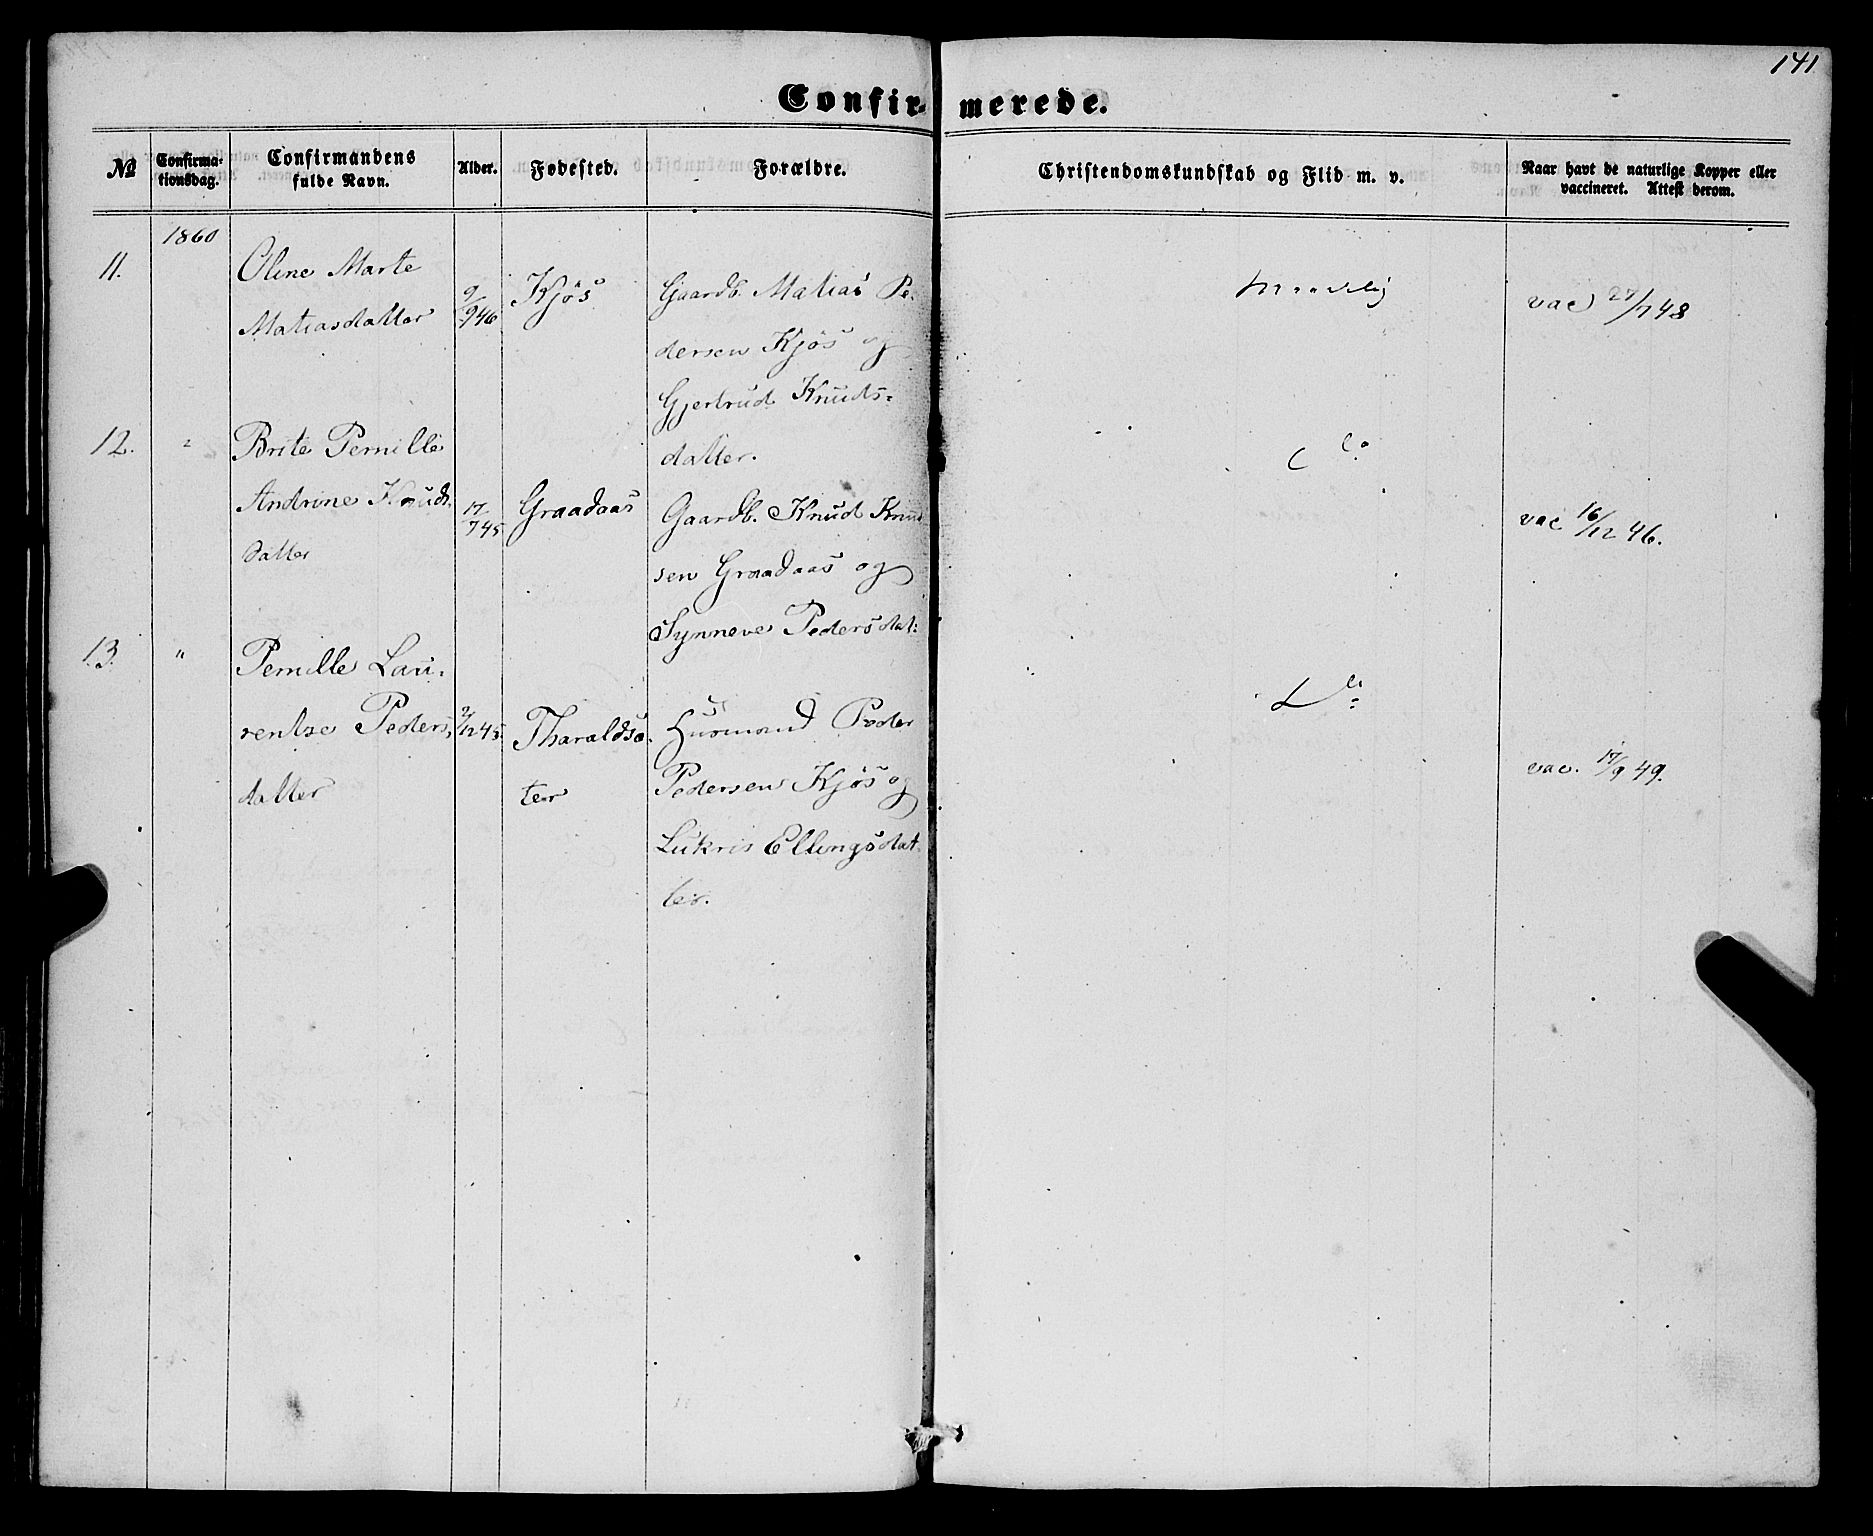 141
Confirmerede.
No
Confirma-
tionsdag.
Confirmandens
fulde Navn.
Alder.
Fødested.
Forældre.
Christendomskundskab og Flid m. v.
Naar havt de naturlige Kopper eller
vaccineret. Attest derom.
1860
11.
Oline Marte
Matiasdatter
9/9 46
Kjøs
Gaardb. Matias Pe-
dersen Kjøs og
Gjertrud Knuds-
datter.
vac 27/7 48
12.
"
Brite Pernille
Andrine Knuds-
datter
17/7 45
Graadaas
Gaardb. Knud Knud
sen Graadaas og
Synneve Pedersdat:
vac 16/12 46.
13.
"
Pernille Lau-
rentse Peders,
datter
2/12 45.
Tharaldsæ-
ter
Huusmand Peder
Pedersen Kjøs og
Lukris Ellingsdat-
ter.
vac. 17/9 49.